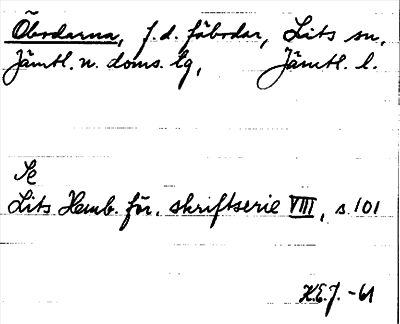 Öbodarna, f.d. fäbodar, Lits sn,
Jämtl. n. doms. lg, Jämtl. l.
Se
Lits Hemb. för. skriftserie VIII, s. 101
K.E.J. -61